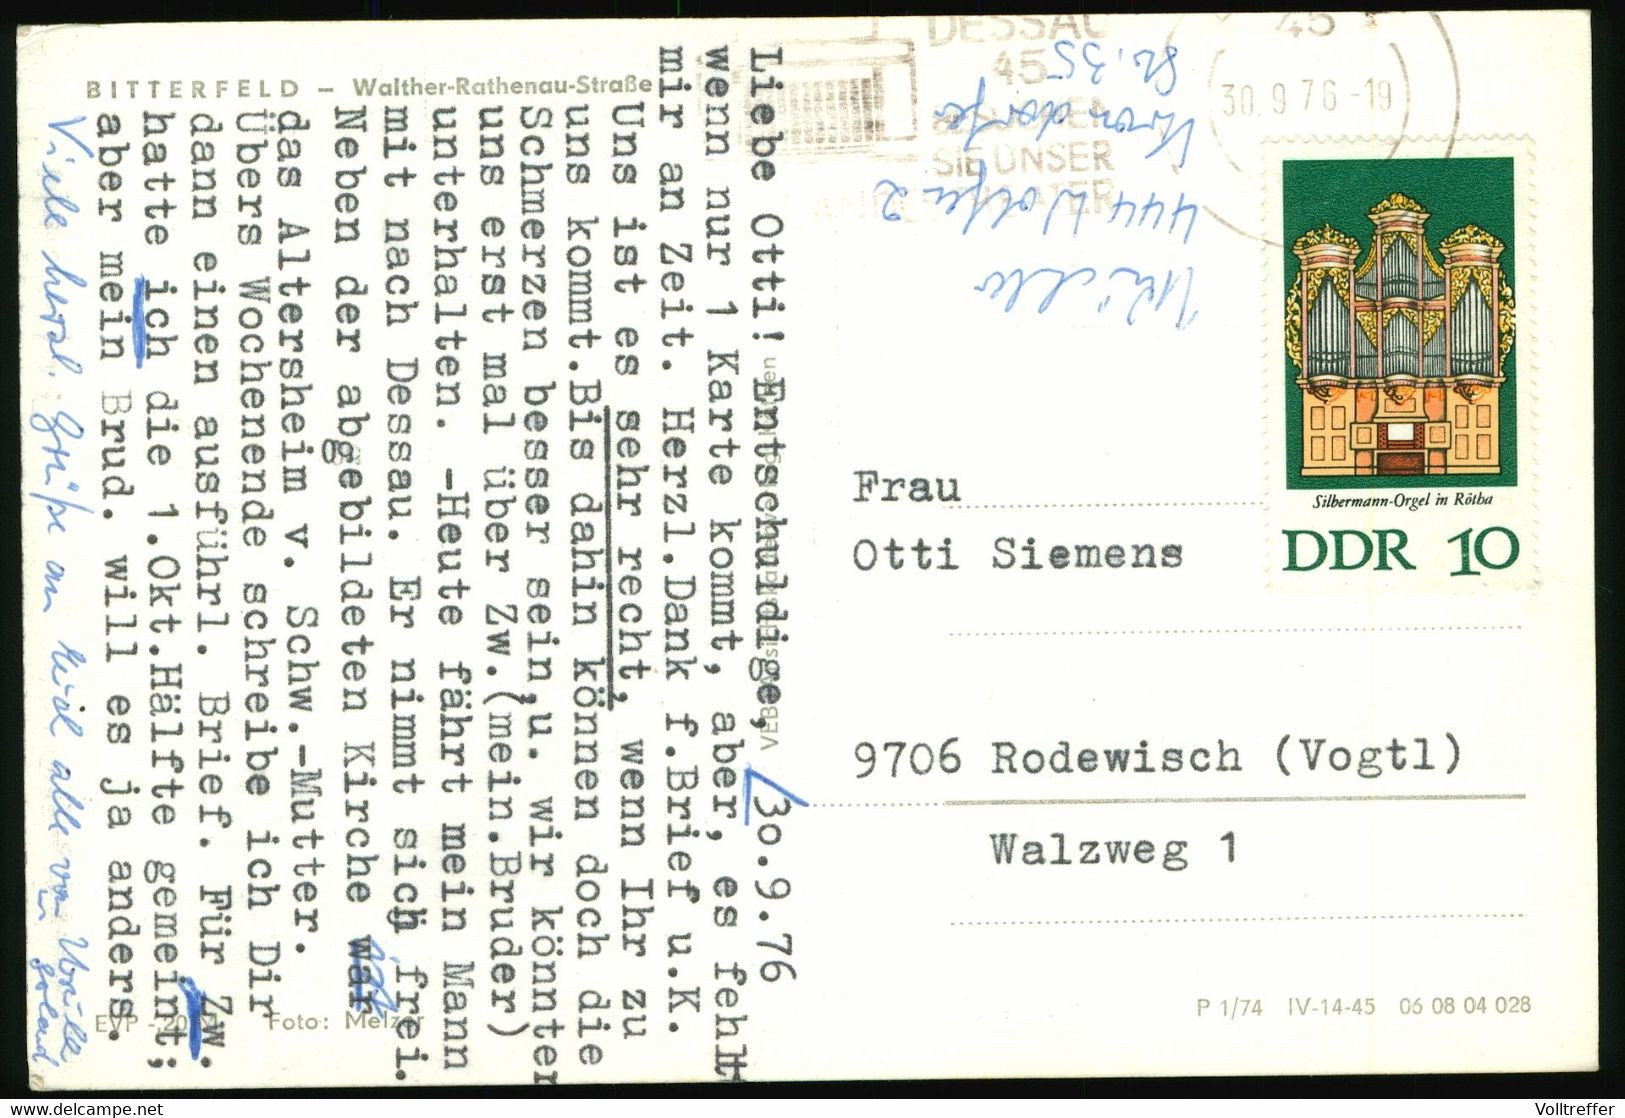 BITTERFELD – Walther-Rathenau-Straße
Liebe Otti! Entschuldige, 30.9.76
wenn nur 1 Karte kommt, aber, es fehlt
mir an Zeit. Herzl.Dank f.Brief u.K.
Uns ist es sehr recht, wenn Ihr zu
uns kommt.Bis dahin können doch die
Schmerzen besser sein,u. wir könnten
uns erst mal über Zw.(mein.Bruder)
unterhalten. -Heute fährt mein Mann
mit nach Dessau. Er nimmt sich frei.
Neben der abgebildeten Kirche war ist
das Altersheim v. Schw.-Mutter.
Übers Wochenende schreibe ich Dir
dann einen ausführl. Brief. Für Zw.
hatte ich die 1.Okt.Hälfte gemeint;
aber mein Brud. will es ja anders.
Viele herzl. Grüße an Euch alle von
EVP -20 Foto: Melzer
DESSAU
45
BESUCHEN
SIE UNSER
LANDESTHEATER
45
30.9.76-19
444 Wolfen 2
Str. 35
Silbermann-Orgel in Rötha
DDR 10
Frau
Otti Siemens
9706 Rodewisch (Vogtl)
Walzweg 1
P 1/74 IV-14-45 06 08 04 028
Volltreffer